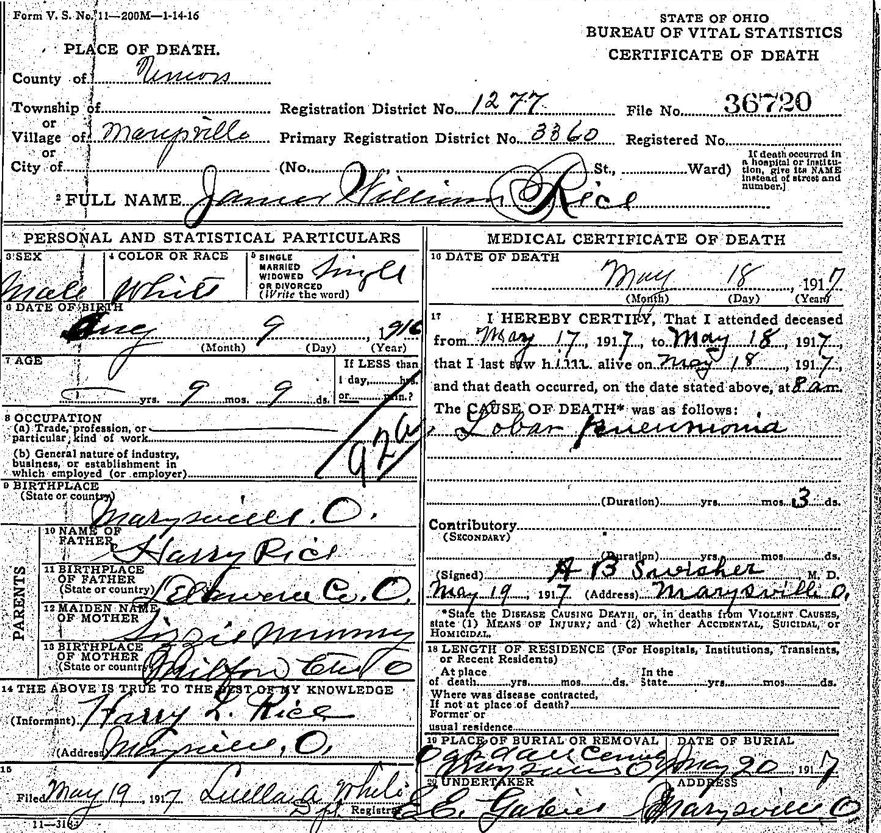 Form V. S. No. 11—200M—1-14-16
STATE OF OHIO
BUREAU OF VITAL STATISTICS
CERTIFICATE OF DEATH
PLACE OF DEATH.
County of
Township of
or
Village of Marysville
or
City of
Registration District No. 1277
File No. 36720
Primary Registration District No. 3360
Registered No.
(No. St., Ward)
If death occurred in a hospital or institution, give its NAME instead of street and number.]
2 FULL NAME James William Rice
PERSONAL AND STATISTICAL PARTICULARS
3 SEX
Male
4 COLOR OR RACE
White
5 SINGLE
MARRIED
WIDOWED
OR DIVORCED
(Write the word)
Single
6 DATE OF BIRTH
Aug 9, 1916
(Month) (Day) (Year)
7 AGE
yrs. 9 mos. 9 ds.
If LESS than
1 day, hrs.
or min.?
8 OCCUPATION
(a) Trade, profession, or
particular, kind of work
(b) General nature of industry,
business, or establishment in
which employed (or employer)
92a
9 BIRTHPLACE
(State or country)
Marysville. O.
PARENTS
10 NAME OF
FATHER
Harry Rice
11 BIRTHPLACE
OF FATHER
(State or country)
Delaware Co. O.
12 MAIDEN NAME
OF MOTHER
Lizzie
13 BIRTHPLACE
OF MOTHER
(State or country)
Milford O
14 THE ABOVE IS TRUE TO THE BEST OF MY KNOWLEDGE
(Informant) Harry L. Rice
(Address) Marysville, O.
15
Filed May 19, 1917 Luella A. White
Dpt. Registrar
11—3163
MEDICAL CERTIFICATE OF DEATH
16 DATE OF DEATH
May 18, 1917
(Month) (Day) (Year)
17 I HEREBY CERTIFY, That I attended deceased
from May 17, 1917, to May 18, 1917,
that I last saw him alive on May 18, 1917,
and that death occurred, on the date stated above, at 8 am.
The CAUSE OF DEATH* was as follows:
Lobar pneumonia
(Duration) yrs. mos. 3 ds.
Contributory
(SECONDARY)
(Duration) yrs. mos. ds.
(Signed) A B Swisher M. D.
May 19, 1917 (Address) Marysville O.
*State the DISEASE CAUSING DEATH, or, in deaths from VIOLENT CAUSES,
state (1) MEANS OF INJURY; and (2) whether ACCIDENTAL, SUICIDAL, or
HOMICIDAL.
18 LENGTH OF RESIDENCE (For Hospitals, Institutions, Transients,
or Recent Residents)
At place
of death yrs. mos. ds.
In the
State yrs. mos. ds.
Where was disease contracted,
If not at place of death?
Former or
usual residence
19 PLACE OF BURIAL OR REMOVAL
Oakdale Cem
Marysville O
DATE OF BURIAL
May 20, 1917
20 UNDERTAKER
ADDRESS
Marysville O